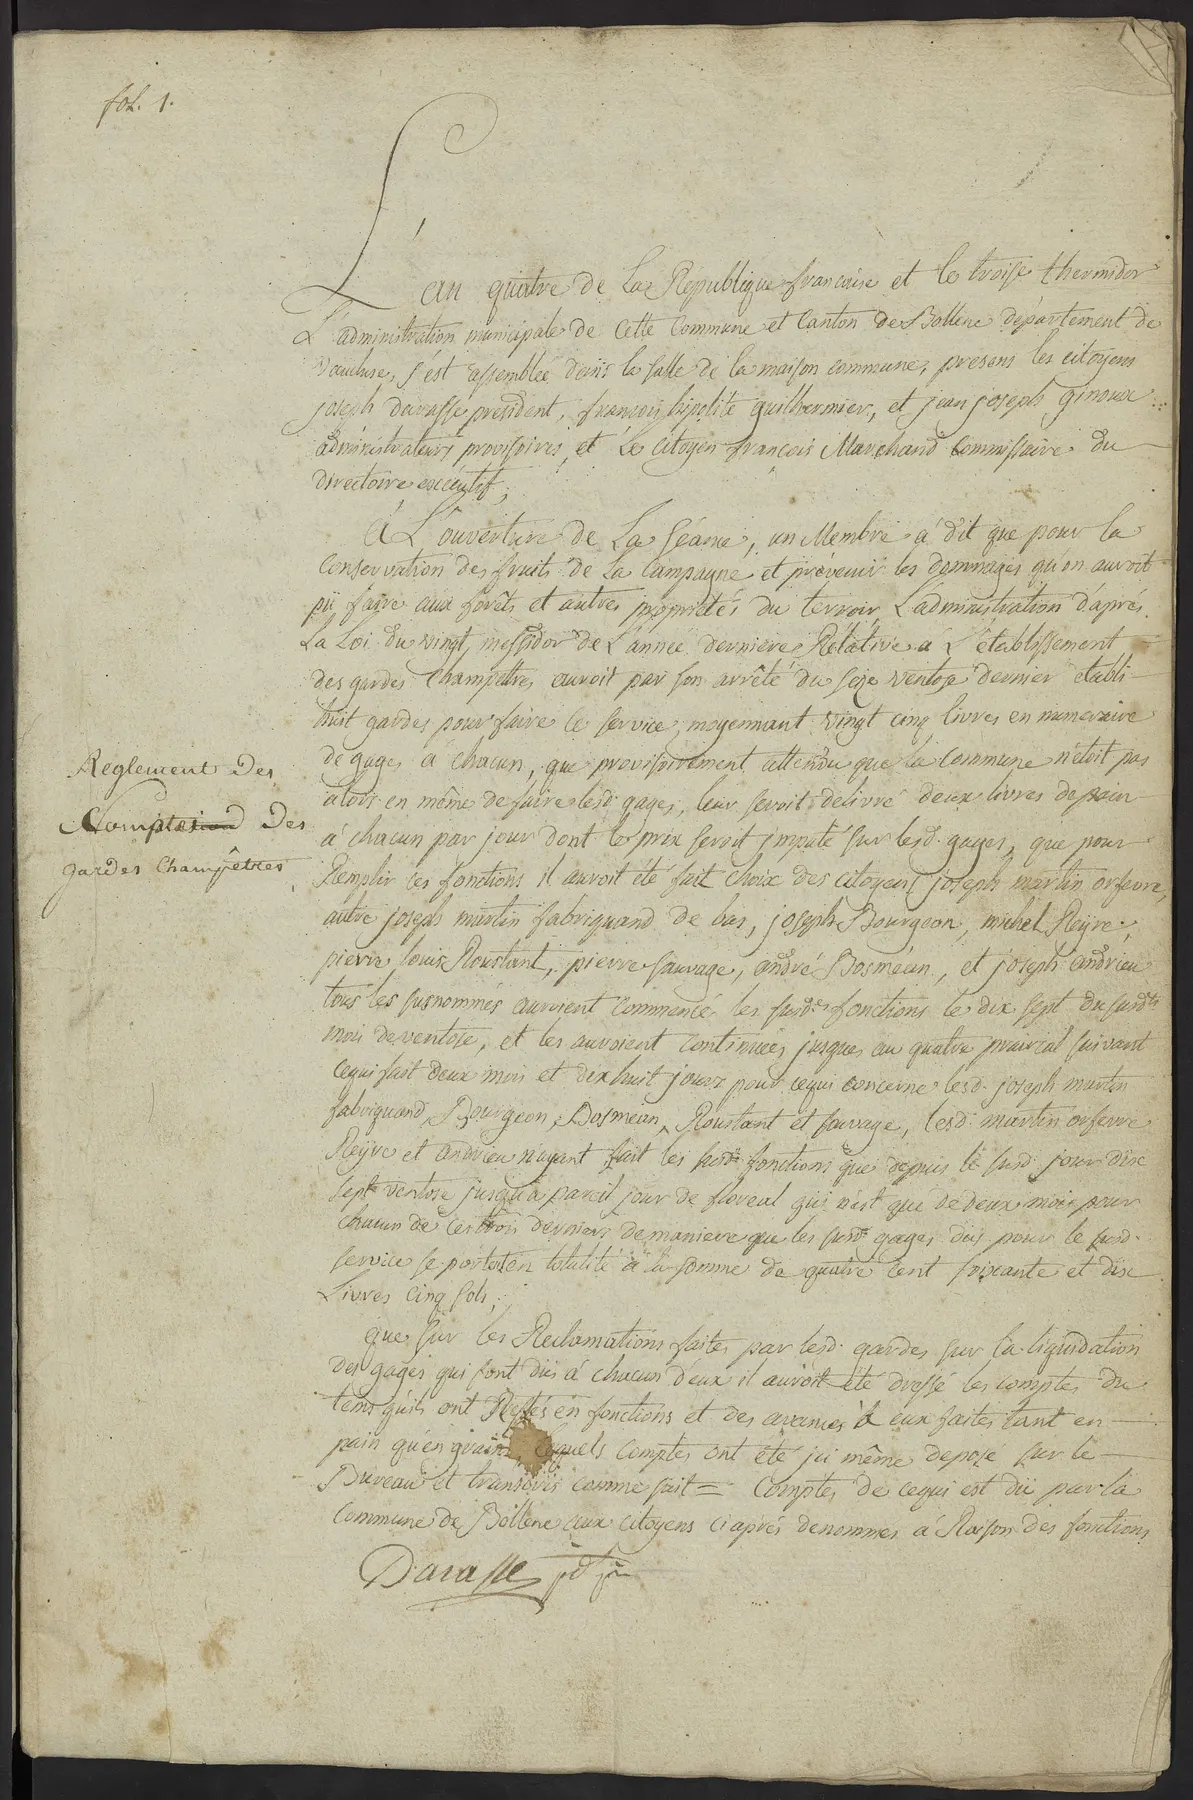 fol. 1.
L'an quatre de La République françoise et le troise thermidor
L'administration municipale de cette Commune et Canton de Bollene département de
vaucluse, s'est assemblée dans la salle de la maison commune, presens les citoyens
joseph davasse president, françois hipolite guilhermier, et jean joseph ginoux
administrateurs provisoires, et Le citoyen françois Marchand Commissaire du
directoire executif;
A L'ouverture de La séance, un Membre a dit que pour la
Conservation des fruits de La Campagne et prévenir les dommages qu'on auroit
pû faire aux forêts et autres propriétés du terroir, L'administration d'après
La Loi du vingt messidor de L'année derniere Rélative a L'etablissement
des gardes Champêtres auroit par son arrêté du seize ventose dernier établi
huit gardes pour faire le service, moyennant vingt cinq livres en numeraire
de gages à chacun, que provisoirement attendu que la commune n'étoit pas
alors en même de faire lesd. gages, leur seroit delivré deux livres de pain
à chacun par jour dont le prix seroit imputé sur lesd. gages, que pour
Remplir ces fonctions il auroit été fait choix des citoyens joseph martin orfevre,
autre joseph martin fabriquand de bas, joseph Bourgeon, michel Reyre,
pierre louis Roustant, pierre sauvage, andré Dosmean, et joseph andrieu
tous les susnommés auroient commencé les susd.es fonctions le dix sept du susdt
mois de ventose, et les auroient continuées jusques au quatre prairial suivant
cequi fait deux mois et dix huit jours pour cequi concerne lesd. joseph martin
fabriquand, Bourgeon, Dosmean, Roustant et sauvage, lesd. martin orfevre
Reyre et andrieu n'ayant fait les susd. fonctions que depuis le susd. jour dix
sept ventose jusqu'a pareil jour de floreal qui n'est que de deux mois pour
chacun de ces trois derniers de maniere que les susd. gages dûs pour le susd.
service se portent en totalité à la somme de quatre cent soixante et dix
Livres cinq sols;
que sur les Reclamations faites par lesd. gardes sur la liquidation
des gages qui sont dûs à chacun d'eux il auroit été dressé les comptes du
tems qu'ils ont Restés en fonctions et des avances à eux faites tant en
pain qu'en grains lequels comptes ont été ici même deposé sur le
Bureau et transcris comme suit = Comptes de cequi est dû par la
Commune de Bollene aux citoyens ci après denommes à Raison des fonctions
Davasse pd
Reglement des
Comptes des
gardes champêtres